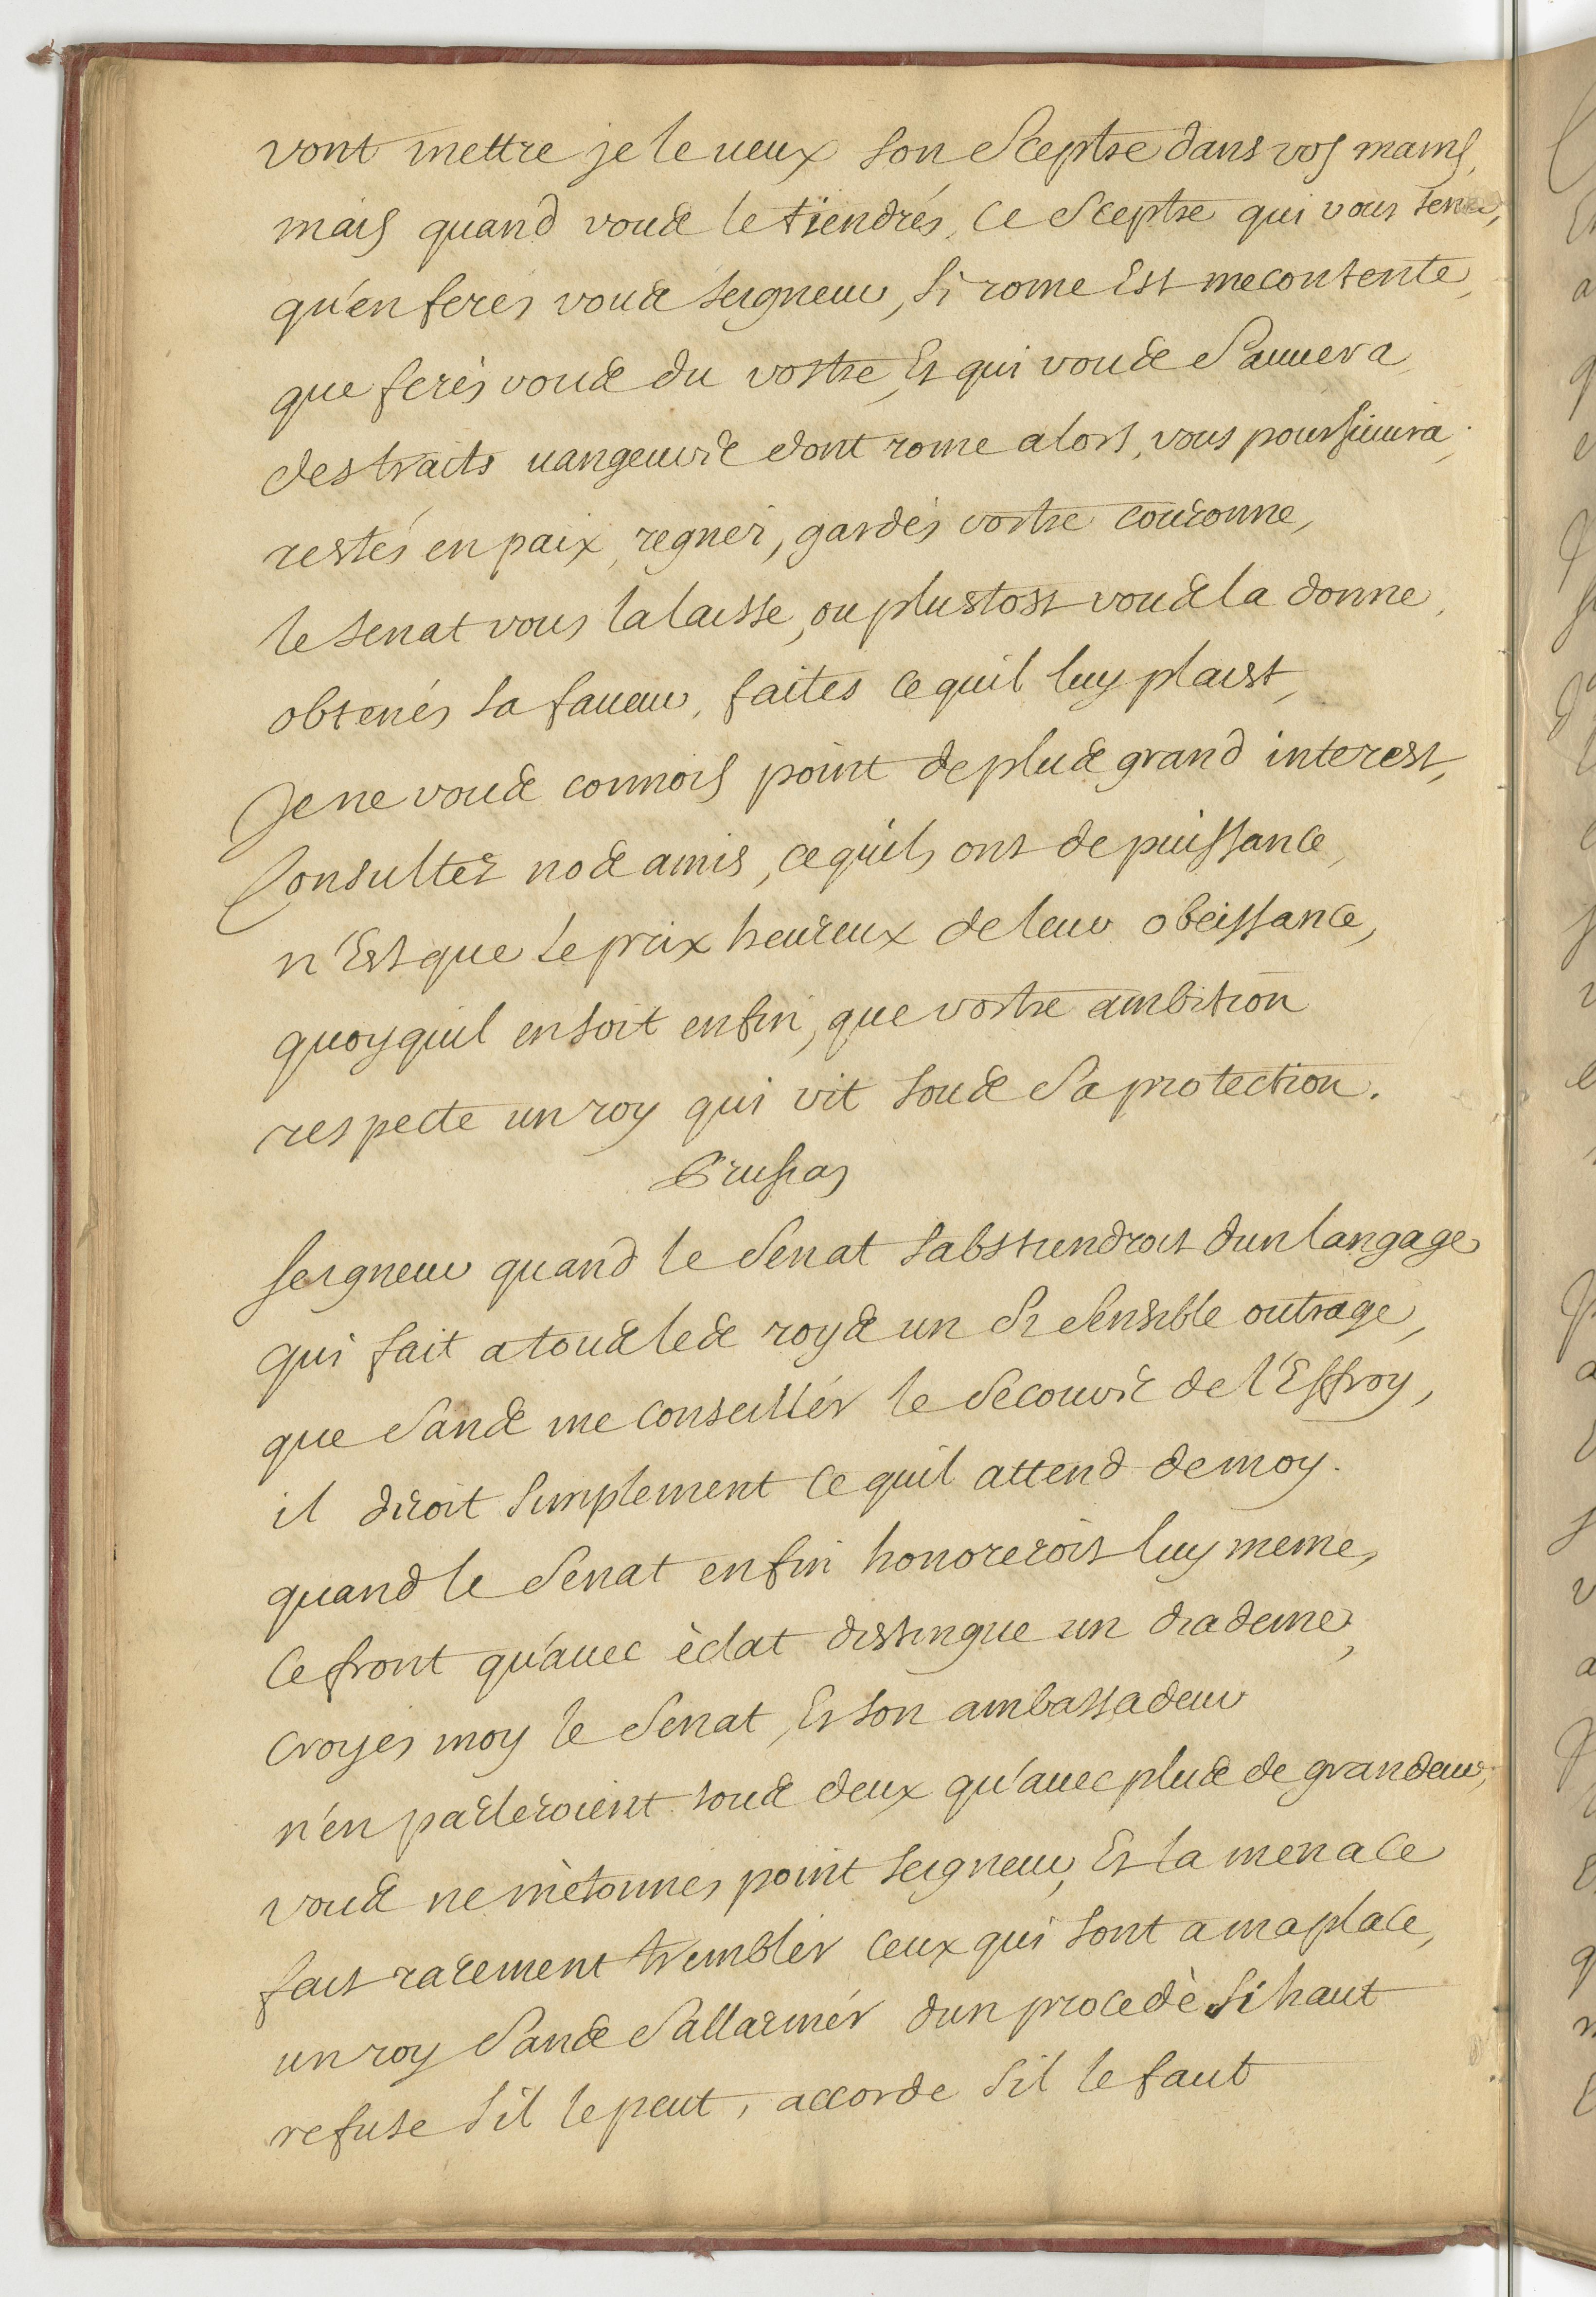 vont mettre je le ueux son Sceptre dans vos mains,
mais quand vous le tiendrés, ce Sceptre qui vous tente,
qu'en ferés vous seigneur, si rome Est mecontente,
que ferés vous du vostre, Et qui vous Sauuera
des traits uangeurs dont rome alors, vous poursuiura,
restés en paix, regnéz, gardés vostre couronne,
le senat vous la laisse, ou plustost vous la donne,
obtenés sa faueur, faites ce quil luy plaist,
Je ne vous connois point de plus grand interest,
Consultez nos amis, ce quils ont de puissance,
n'Est que le prix heureux de leur obeissance,
quoy quil en soit enfin, que vostre ambition
respecte un roy qui vit sous Sa protection.
Prusias
seigneur quand le Senat sabstiendroit dun langage
qui fait a tous les roys un Si Sensible outrage,
que Sans me conseillér le Secours de l'Effroy,
il diroit simplement ce quil attend de moy.
quand le Senat enfin honoreroit luy meme,
ce front qu'auec èclat distingue un diademe,
croyés moy le Senat, Et son ambassadeur
n'en parleroient tous deux qu'auec plus de grandeur,
vous ne m'ètonnés point seigneur, Et la menace
fait rarement tremblér ceux qui sont a ma place,
un roy Sans Sallarmér dun procedè si haut
refuse sil le peut, accorde sil le faut